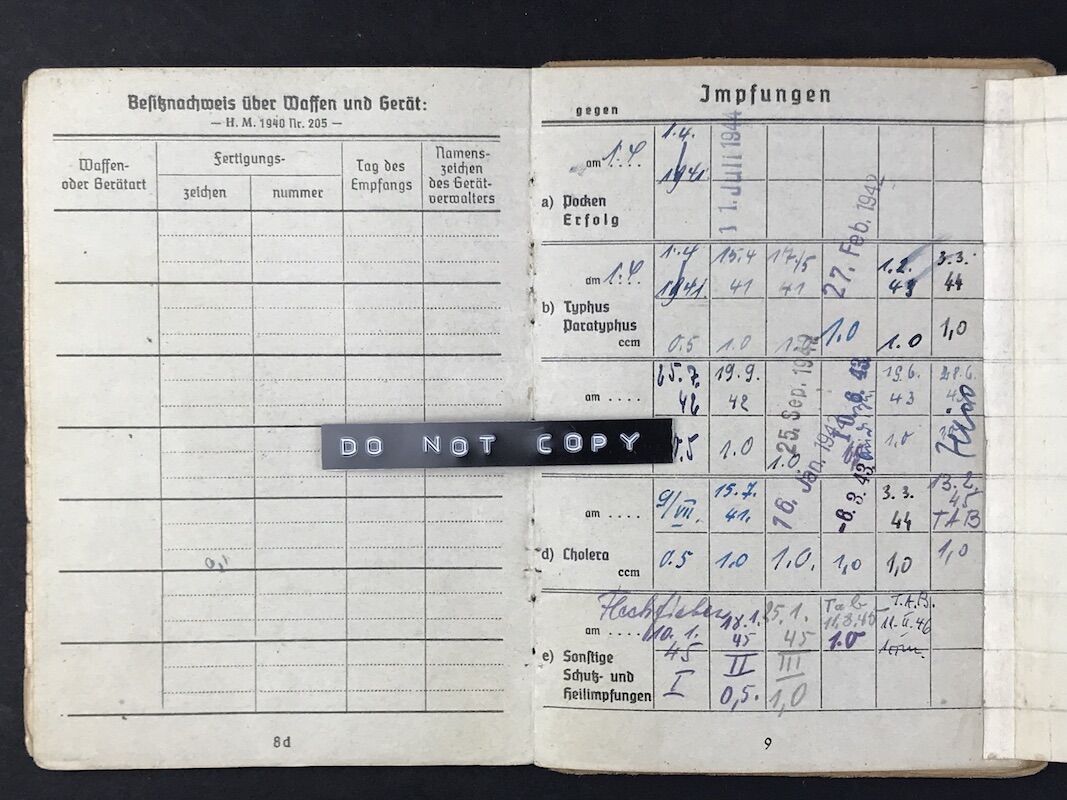 Besitznachweis über Waffen und Gerät:
— H. M. 1940 Nr. 205 —
Waffen-
oder Gerätart
Fertigungs-
zeichen
nummer
Tag des
Empfangs
Namens-
zeichen
des Gerät-
verwalters
8d
DO NOT COPY
Impfungen
gegen
am
1.4.
1941
11. Juli 1944
a) Pocken
Erfolg
am
1.4
1941.
15.4
41
17/5
41
27. Feb. 1942
1.2.
43
3.3.
44
b) Typhus
Paratyphus
ccm
0.5
1.0
1.0
1.0
1,0
am ....
19.9.
42
25. Sep. 1942
19.6.
43
1.0
1.0.
1.0
am ....
9/VII.
15.7.
41.
16. Jan. 1942
-6.3.43
3.3.
44
13.2.
45
TAB
d) Cholera
ccm
0.5
1.0
1.0.
1,0
1,0
1,0
Fleckfieber
am ....
10.1.
45
I
18.1.
45
II
0,5.
25.1.
45
III
1,0
Tab
1.0
T.A.B.
11.II.46
e) Sonstige
Schutz- und
Heilimpfungen
9